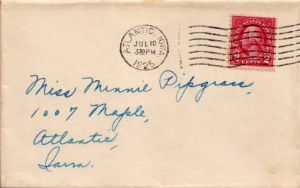 ATLANTIC, IOWA
JUL 10
3 30 PM
1925
CENTS
Miss Minnie Pipgrass,
1007 Maple,
Atlantic,
Iowa.